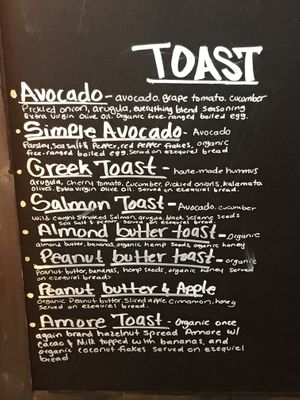 TOAST
Avocado - avocado, grape tomato, cucumber
Pickled onion, arugula, everything blend seasoning
Extra Virgin Olive Oil. Organic free-ranged boiled egg.
Simple Avocado - Avocado
Parsley, Sea Salt & Pepper, red pepper flakes, organic
free-ranged boiled egg. Served on ezequiel bread
Greek Toast - house-made hummus
arugula, cherry tomato, cucumber, Pickled onions, Kalamata
olives, Extra Virgin Olive Oil. Served on ezequiel bread.
Salmon Toast - Avocado, cucumber
wild caught Smoked Salmon, arugula, black sesame seeds
Sea Salt & Pepper. Served on ezequiel bread
Almond butter toast - Organic
almond butter, bananas, organic hemp seeds, organic honey
Peanut butter toast - organic
Peanut butter, bananas, hemp seeds, organic honey served
on ezequiel bread.
Peanut butter & Apple
Organic Peanut butter, Sliced apple cinnamon, honey
Served on ezequiel bread.
Amore Toast - Organic once
again brand hazelnut Spread Amore w/
Cacao & Milk topped with bananas, and
organic coconut flakes served on ezequiel
bread